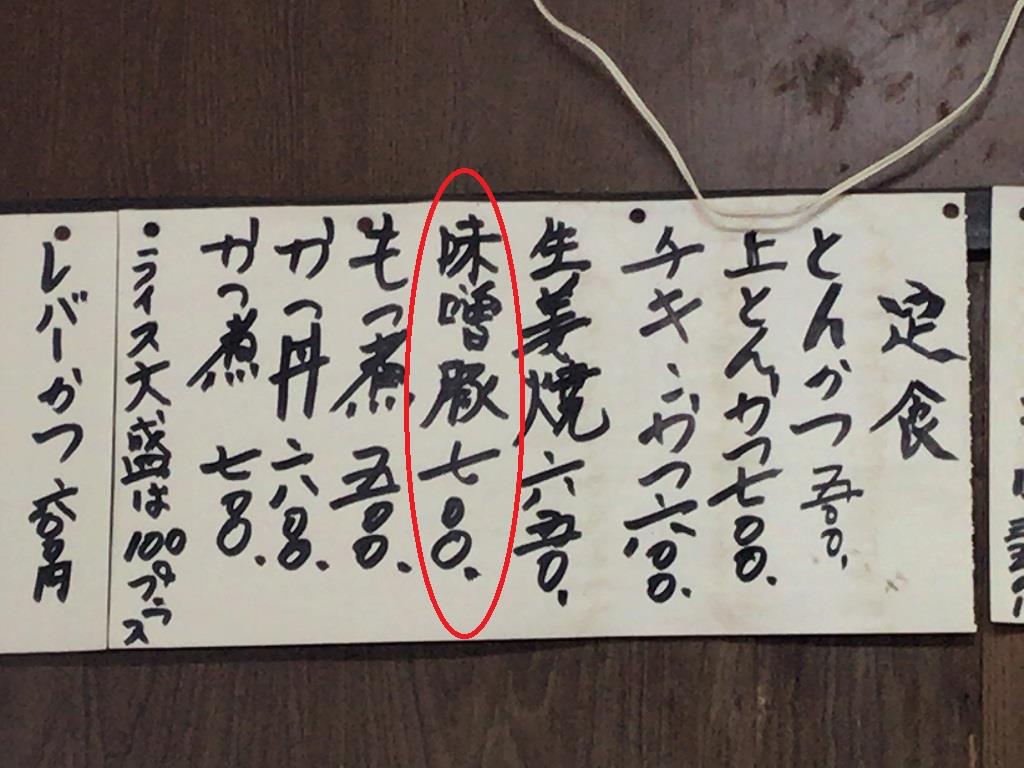 定食
とんかつ 五〇〇.
上とんかつ 七〇〇.
チキンかつ 六〇〇.
生姜焼 六五〇.
味噌豚 七〇〇.
もつ煮 五〇〇.
かつ丼 六八〇.
かつ煮 七〇〇.
・ライス大盛は100プラス
レバーかつ 六〇〇円